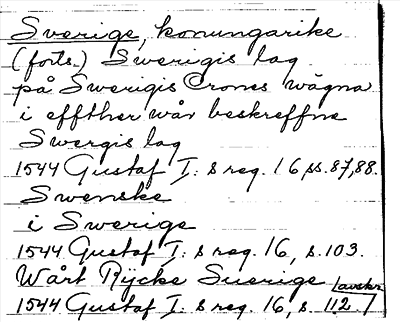 Sverige, konungarike
(forts.) Swerigis lag
på Swerigis Crones wägna
i effther wår beskreffne
Swergis lag
1544 Gustaf I: s reg. 16, ss. 87, 88.
Swenske
i Swerige
1544 Gustaf I: s reg. 16, s. 103.
Wårt Rijcke Suerige
1544 Gustaf I: s reg. 16, s. 112.